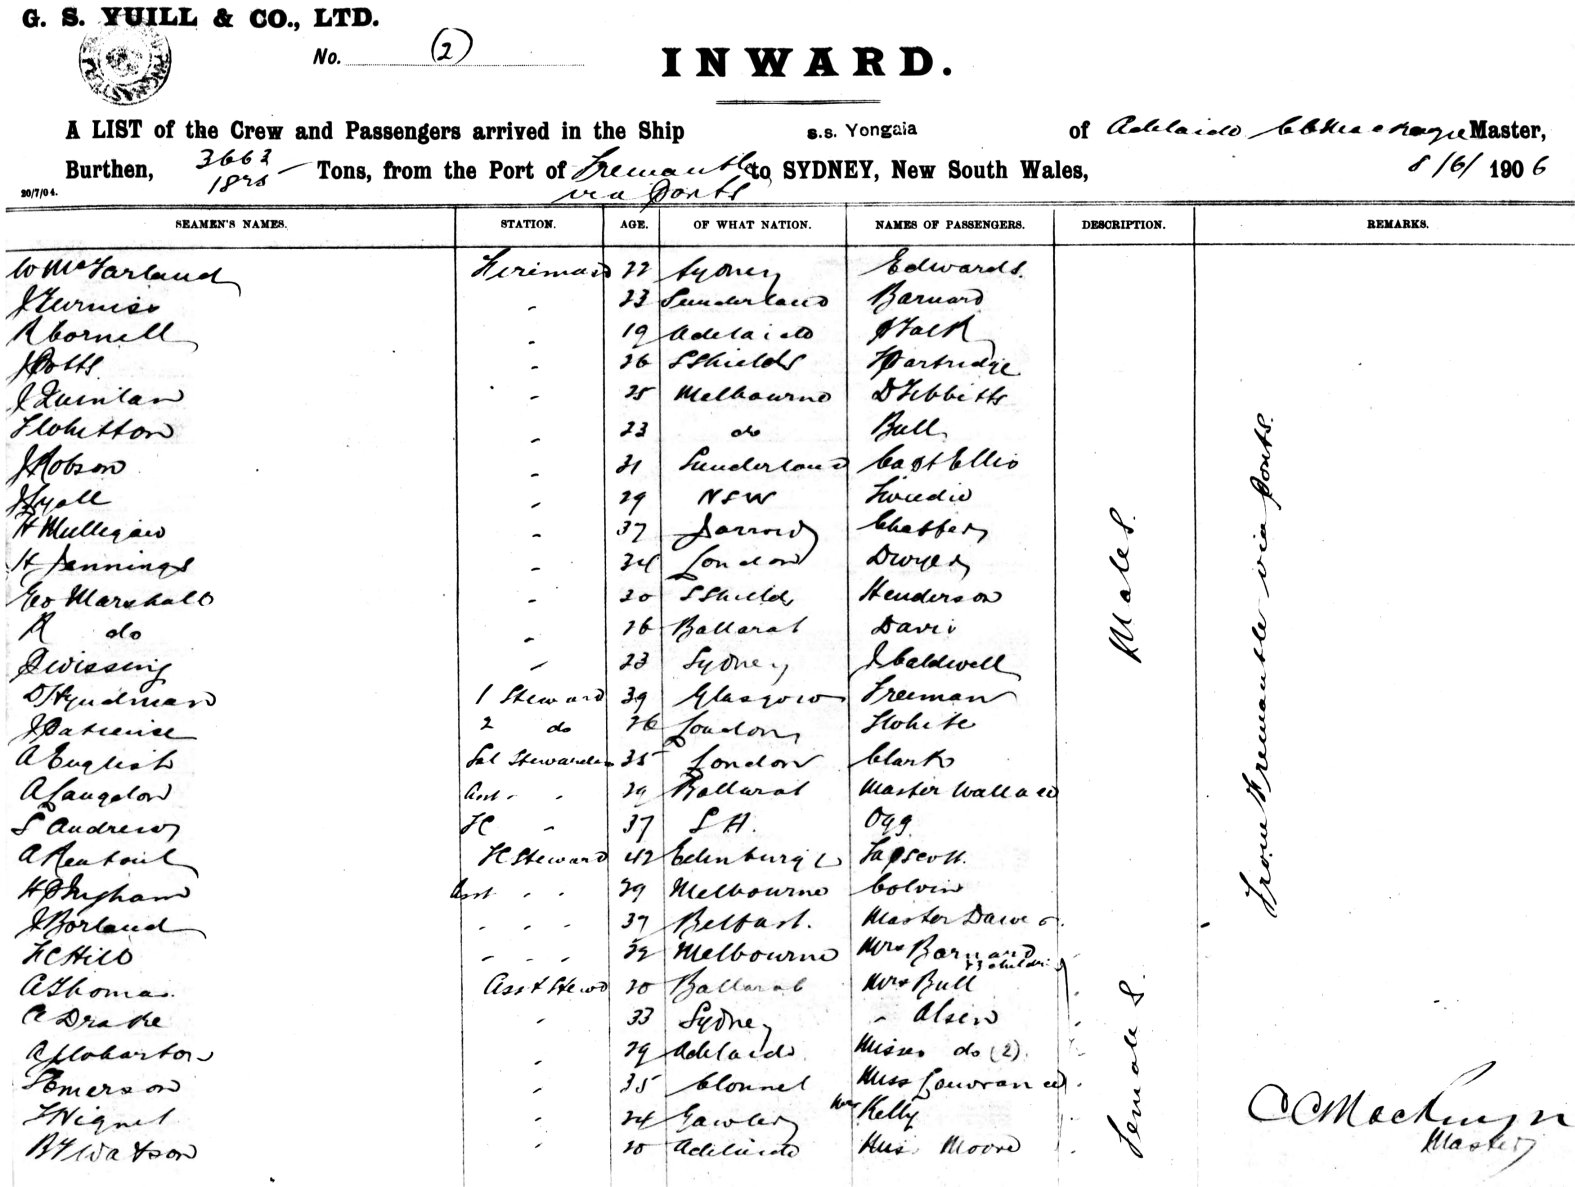 G. S. YUILL & CO., LTD.
No. (2)
INWARD.
A LIST of the Crew and Passengers arrived in the Ship s.s. Yongala of Adelaide Master,
Burthen, 3663 Tons, from the Port of Fremantle to SYDNEY, New South Wales, 8/6/ 1906
1825 via Ports
20/7/04.
SEAMEN'S NAMES. STATION. AGE. OF WHAT NATION. NAMES OF PASSENGERS. DESCRIPTION. REMARKS.
W McFarland Fireman 22 Sydney Edwards
J Furniss " 23 Sunderland Barnard
R Cornell " 19 Adelaide Falk
J Potts " 26 S Shields Partridge
J Quinlan " 25 Melbourne D Tibbitts
F Whitton " 23 do Bull
J Robson " 31 Sunderland Capt Ellis
J Lyall " 29 NSW Tweedie
H Mulligan " 37 Jarrow Chaffey
H Jennings " 34 London Dwyer
Geo Marshall " 20 S Shields Henderson
R do " 26 Ballarat Davis
Wissing " 23 Sydney J Caldwell
D Hyndman 1 Steward 39 Glasgow Freeman
J 2 do 26 London White
A English Sal Stewardess 35 London Clark
A Langdon Asst " " 29 Ballarat Master Wallace
S Andrews FC " 37 S A. Ogg
A Rentoul FC Steward 42 Edinburgh Tapscott
H P Ingham Asst " " 29 Melbourne Colvin
J Borland " " " 37 Belfast. Master Dawes
F C Hill " " " 32 Melbourne Mrs Barnard
A Thomas Asst Stewd 20 Ballarat Mrs Bull
C Drake " 33 Sydney " Alsen
A Wharton " 29 Adelaide Misses do (2)
Emerson " 35 Clonmel Miss Lawrance
" 24 Gawler Mrs Kelly
Watson " 20 Adelaide Miss Moore
Males.
Females.
From Fremantle via Ports.
Master